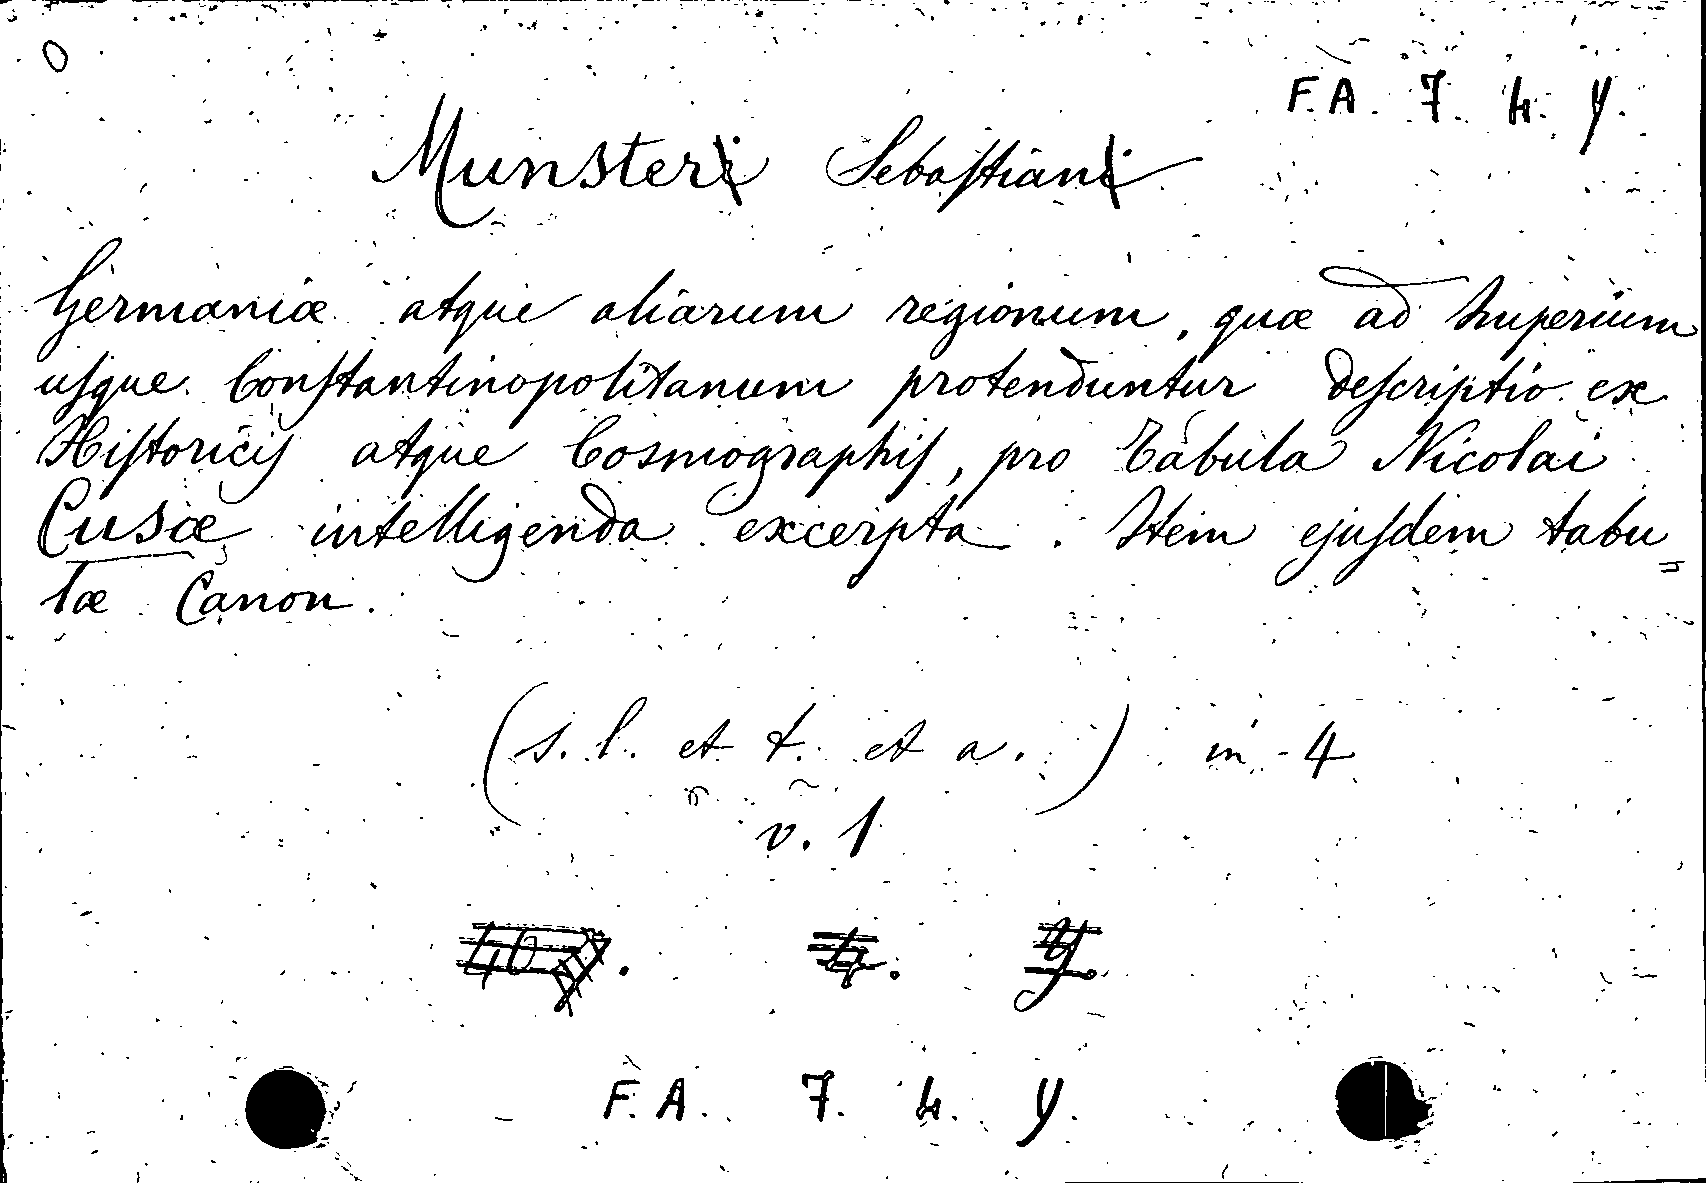 O
F. A. 7. 4. y.
Munsteri Sebaſtiani
Germaniæ atque aliarum regionum, quæ ad Imperium
uſque Conſtantinopolitanum protenduntur deſcriptio ex
Hiſtoriciſ atque Cosmographiſ, pro Tabula Nicolai
Cusæ intelligenda excerpta. Item ejuſdem tabu=
læ Canon.
(s. l. et t. et a.) in-4
v. 1
4. y.
F. A. 7. 4. y.